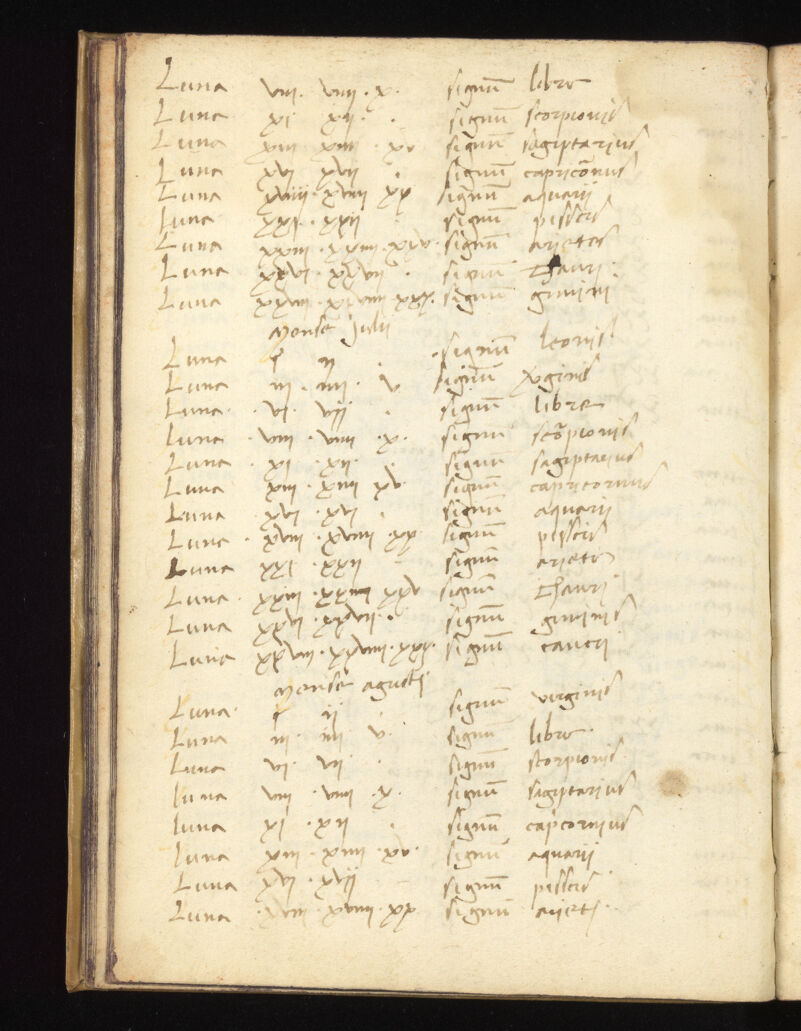 Luna viii · viiii · x · signū libre
Luna xi xii · signū scorpionis
Luna xiii xiiii · xv signū sagiptarius
Luna xvi xvii · signū capricōnus
Luna xviii · xviiii xx signū aquarii
Luna xxi · xxii · signū pisscis
Luna xxiii · xxiiii · xxv · signū arietes
Luna xxvi · xxvii · signū Thauri ·
Luna xxviii · xxviiii xxx · signū gimini
Monse Julii
Luna i ii · signū leonis
Luna iii · iiii · v signū x̄ginis
Luna · vi · vii · signū libre
Luna · viii · viiii · x · signū scōpionis
Luna · xi · xii · signū sagiptarius
Luna xiii · xiiii xv · signū capricornius
Luna · xvi · xvi · signū aquarii
Luna · xviii · xviiii · xx signū pisscis
Luna xxi · xxii signū ariete
Luna xxiii · xxiiii xxv signū Thauri
Luna xxvi · xxvii · signū giminis
Luna xxviii · xxviiii · xxx · signū cancri
Monse agusti
Luna · i ii · signū virginis
Luna iii · iiii v · signū libre ·
Luna vi · vii · signū scorpionis
luna viii · viiii · x · signū sagiptarius
luna xi · xii · signū capcornius
luna xiii · xiiii · xv · signū aquarii
Luna xvi · xvii signū pisscis
Luna · xviii · xviiii · xx signū arieti ·